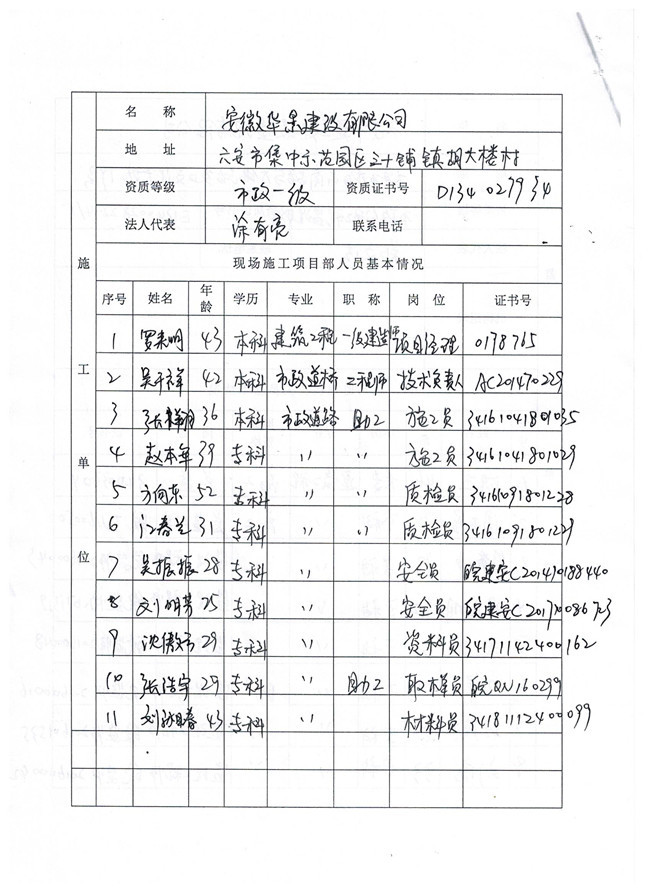 名 称 安徽华杰建设有限公司
地 址 六安市集中示范园区三十铺镇胡大楼村
资质等级 市政一级 资质证书号 D134027954
法人代表 涂有亮 联系电话
施工单位
现场施工项目部人员基本情况
序号 姓名 年龄 学历 专业 职 称 岗 位 证书号
1 罗来明 43 本科 建筑工程 一级建造师 项目经理 0178765
2 吴于祥 42 本科 市政道桥 工程师 技术负责人 AC201470229
3 36 本科 市政道路 助工 施工员 34161041801035
4 赵本年 39 专科 〃 〃 施工员 34161041801029
5 方向东 52 专科 〃 〃 质检员 34161091801228
6 江春兰 31 专科 〃 〃 质检员 34161091801229
7 吴振振 28 专科 〃 安全员 皖建安C201470188440
8 刘明芳 25 专科 〃 安全员 皖建安C2017
9 沈傲 29 专科 〃 资料员 34171142400162
10 张浩宇 29 专科 〃 助工 取样员 皖QN160299
11 刘 春 43 专科 〃 材料员 34181112400099